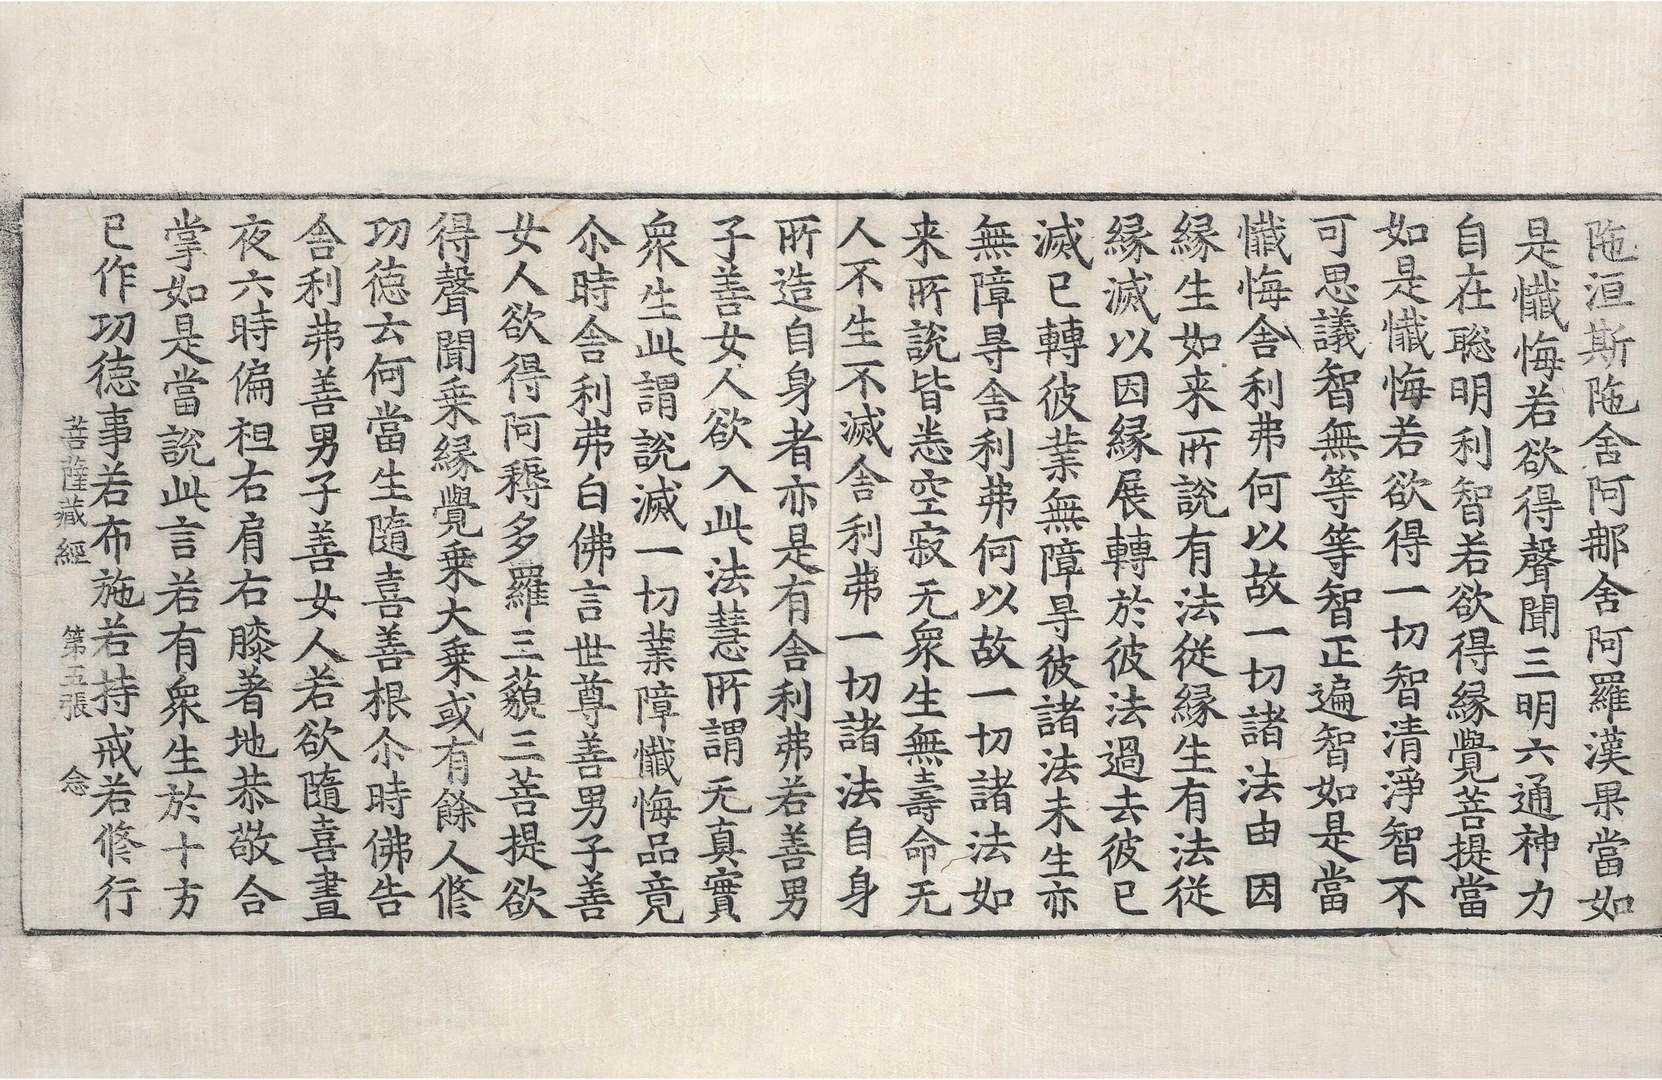 陁洹斯陁舍阿那舍阿羅漢果當如
是懺悔若欲得聲聞三明六通神力
自在聡明利智若欲得縁覺菩提當
如是懺悔若欲得一切智清淨智不
可思議智無等等智正遍智如是當
懺悔舍利弗何以故一切諸法由因
縁生如来所說有法従縁生有法従
縁滅以因縁展轉於彼法過去彼已
滅已轉彼業無障㝵彼諸法未生亦
無障㝵舍利弗何以故一切諸法如
来所說皆悉空寂无衆生無壽命无
人不生不滅舍利弗一切諸法自身
所造自身者亦是有舍利弗若善男
子善女人欲入此法慧所謂无真實
衆生此謂說滅一切業障懺悔品竟
尒時舍利弗白佛言世尊善男子善
女人欲得阿耨多羅三藐三菩提欲
得聲聞乗縁覺乗大乗或有餘人修
功徳云何當生隨喜善根尒時佛告
舍利弗善男子善女人若欲隨喜晝
夜六時偏袒右肩右膝著地恭敬合
掌如是當說此言若有衆生於十方
已作功徳事若布施若持戒若修行
菩薩藏經 第五張 念